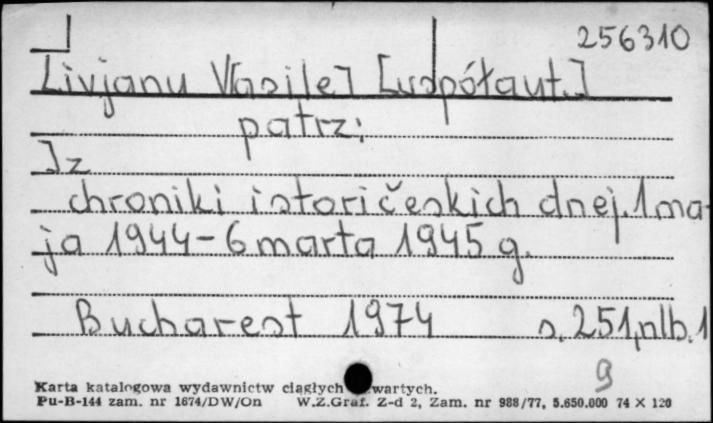 256310
Livjanu V[asile] [współaut.]
patrz:
Iz
chroniki istoričeskich dnej. 1 ma-
ja 1944-6 marta 1945 g.
Bucharest 1974 s. 251, nlb. 1
g
Karta katalogowa wydawnictw ciągłych wartych.
Pu-B-144 zam. nr 1674/DW/On W.Z.Graf. Z-d 2, Zam. nr 988/77, 5.650.000 74 X 120